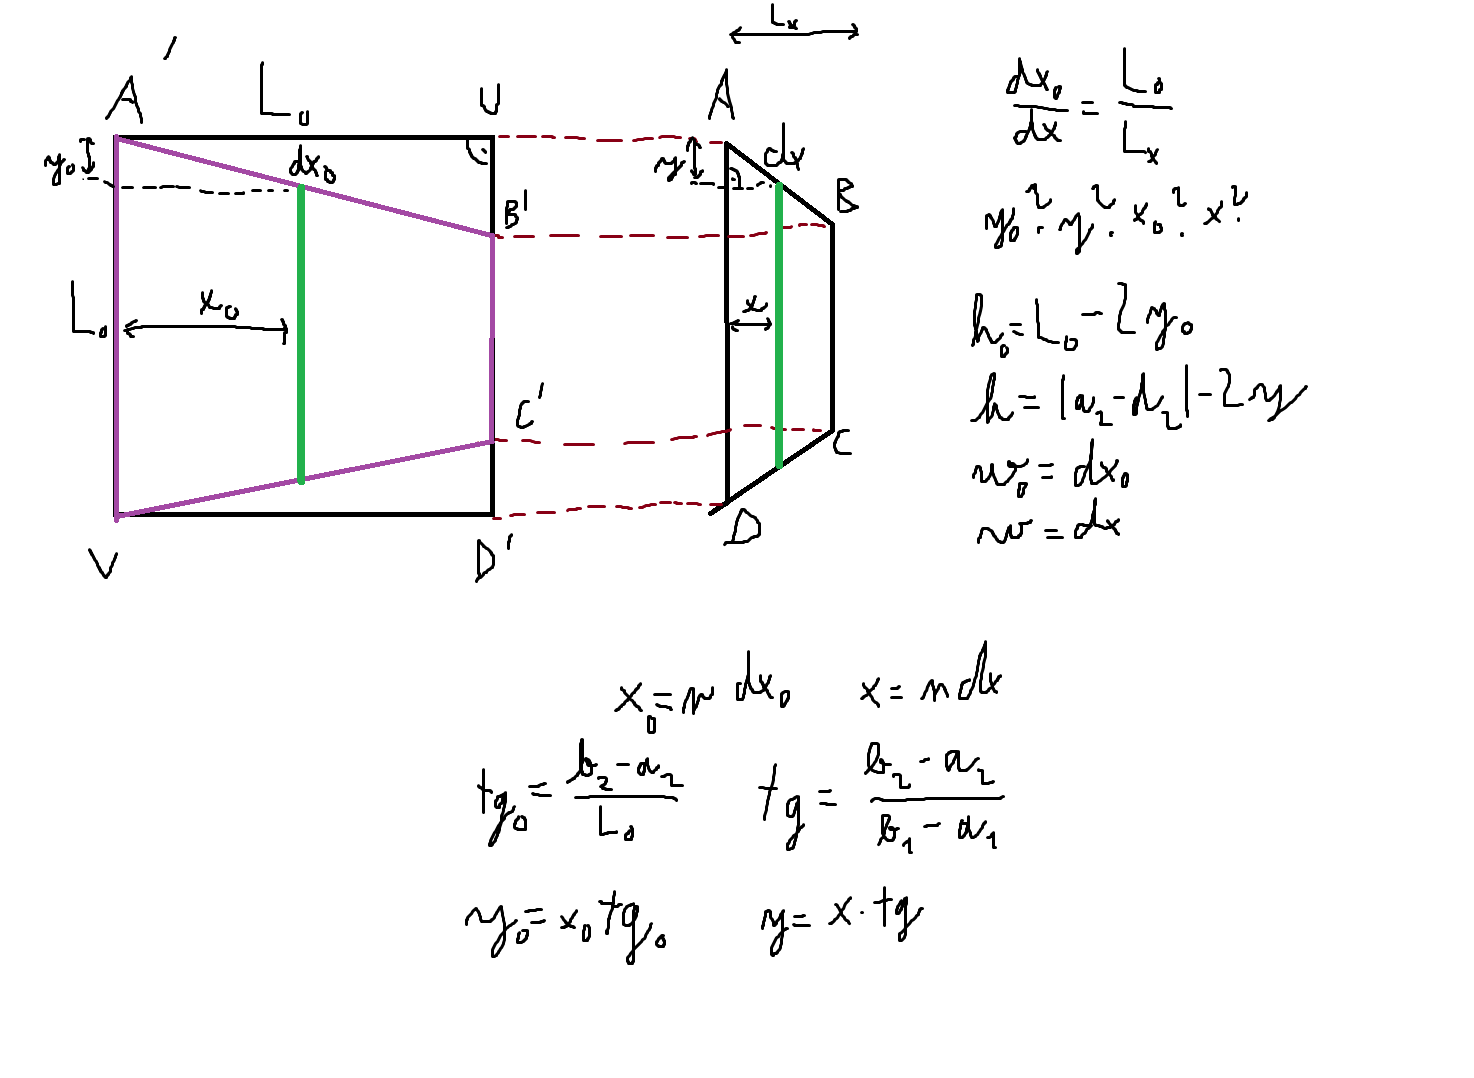 A'
L₀
U
A
Lₓ
y₀
dx₀
y
dx
B'
B
L₀
x₀
x
C'
C
V
D'
D
dx₀/dx = L₀/Lₓ
y₀? y? x₀? x?
h₀ = L₀ - 2y₀
h = |a₂ - d₂| - 2y
w₀ = dx₀
w = dx
x₀ = n dx₀ x = n dx
tg₀ = (b₂ - a₂)/L₀ tg = (b₂ - a₂)/(b₁ - a₁)
y₀ = x₀ tg₀ y = x · tg